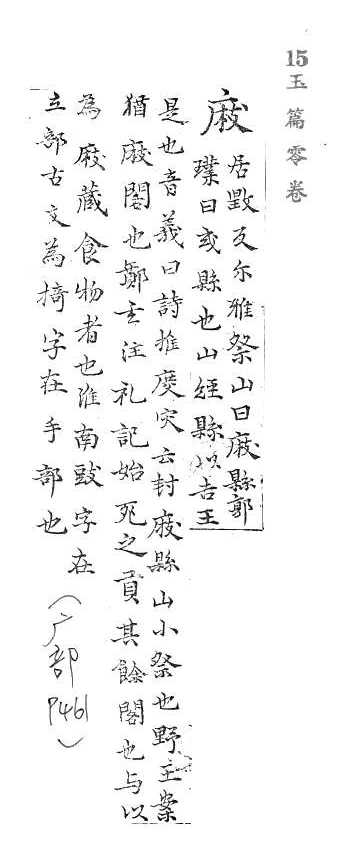 15玉篇零卷
庪
居毀反尒雅祭山曰庪縣郭
璞曰或縣也山經縣以吉王
是也音義曰詩推度灾云封庪縣山小祭也野王案
猶庪閣也鄭玄注礼記始死之貢其餘閣也与以
為庪藏食物者也淮南豉字在
立部古文為掎字在手部也
(广部P461)